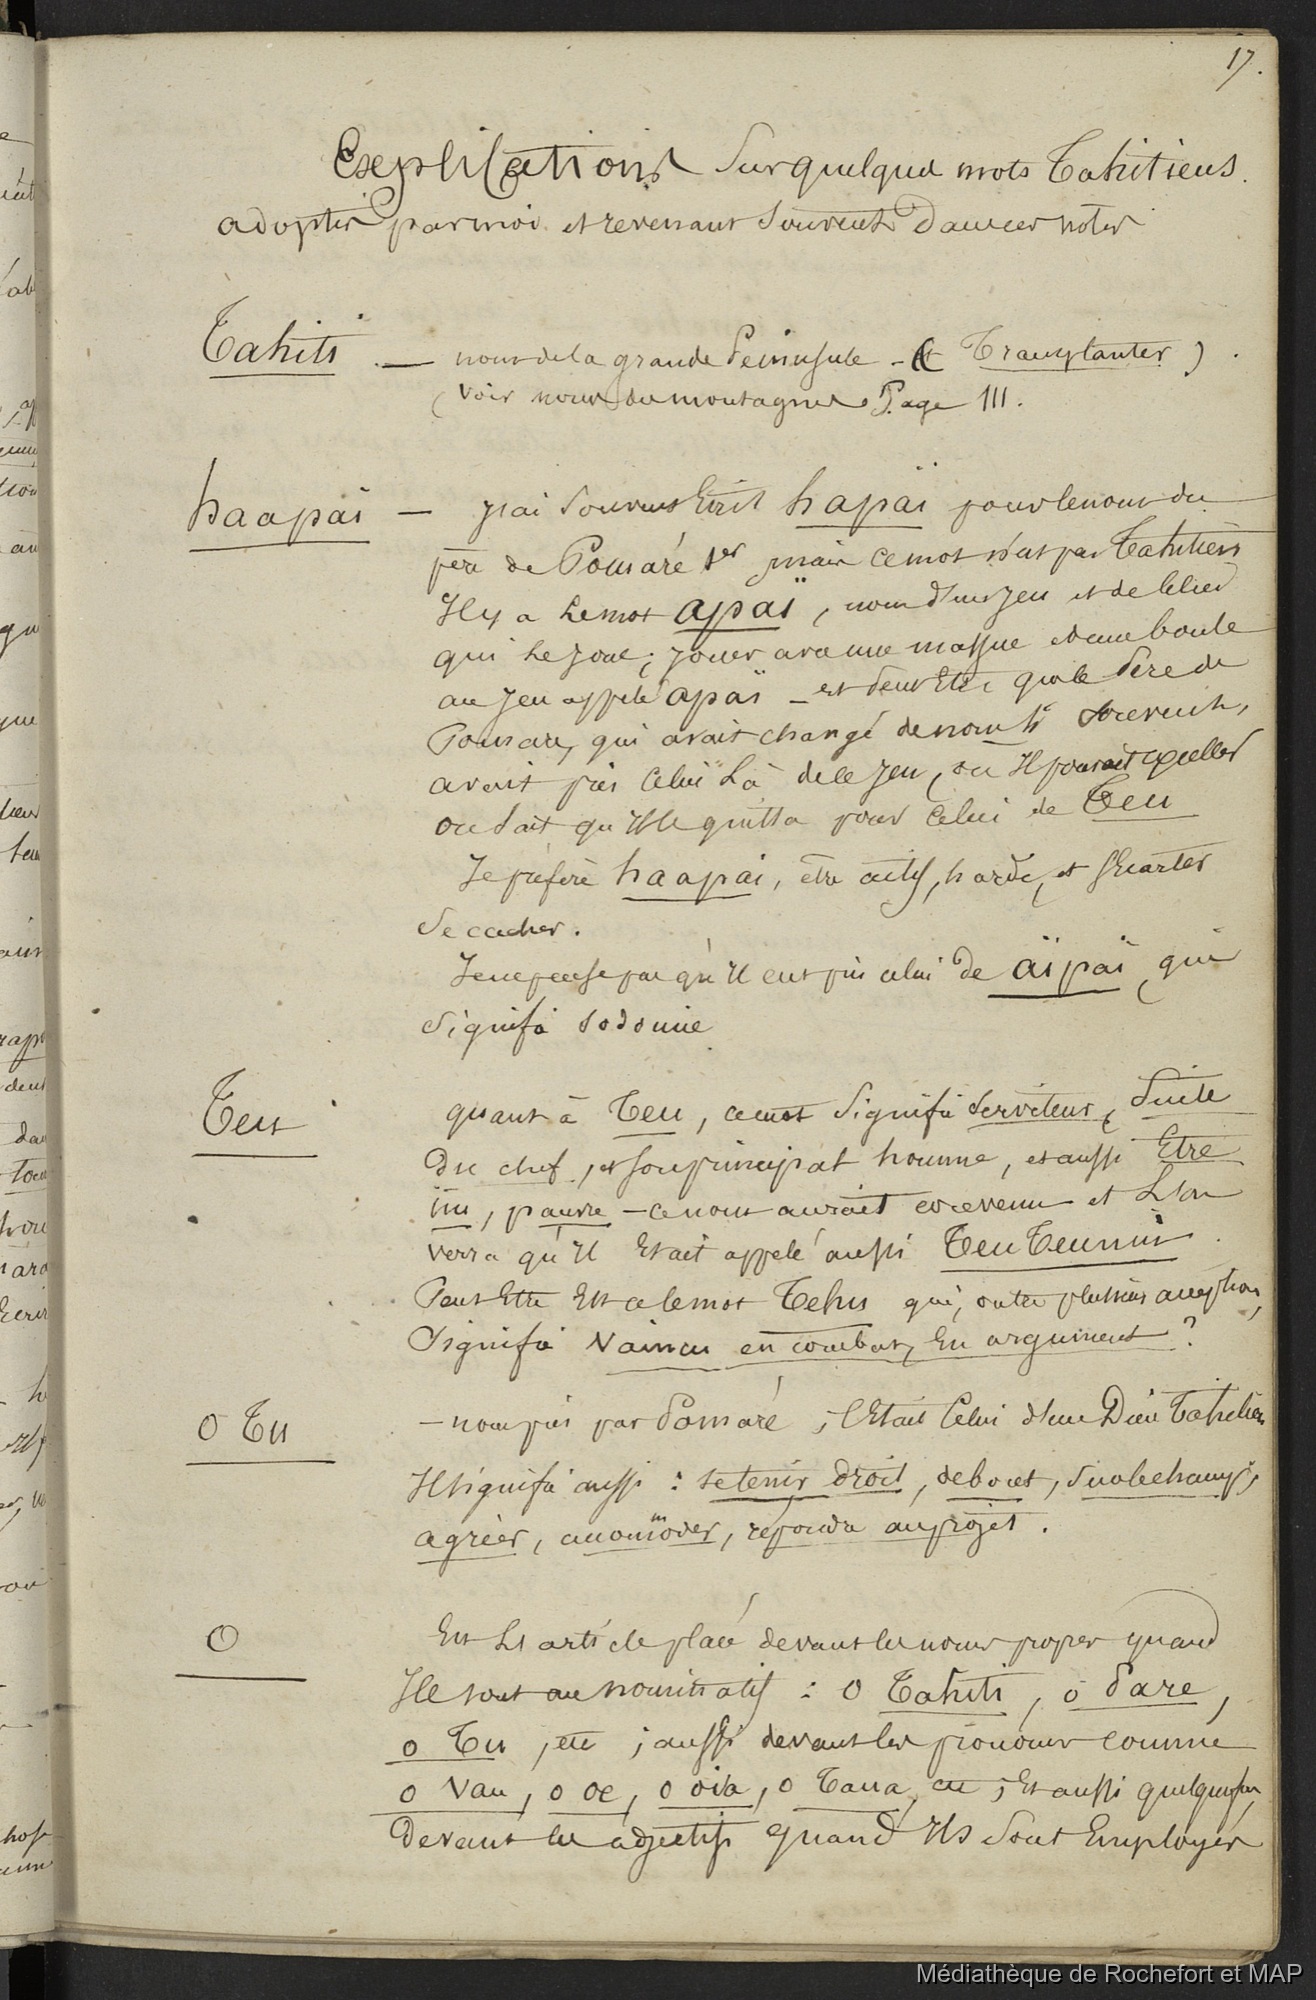 17.
Explications Sur quelques mots Tahitiens.
adoptés par moi et revenant Souvent Dans ces notes
Tahiti — nom de la grande Peninsule - (Transplanter)
(Voir noms des montagnes Page 111.
haapaï — J'ai Souvent Ecrit hapaï pour le nom du
père de Pomaré 1er mais ce mot n'est pas Tahitien
Il y a le mot apaï, nom d'un Jeu et de celui
qui le Joue; Jouer avec une massue et une boule
au Jeu appelé apaï - et peut Etre que le Père de
Pomare, qui avait changé de nom Souvent,
avait pris Celui là de ce Jeu, où Il pouvait exceller
on Sait qu'Il le quitta pour Celui de Teu
Je préfère haapai, être actif, hardi, et s'écarter
Se cacher.
Je ne pense pas qu'Il eut pris celui de aïpaï, qui
Signifie Sodomie
Teu quant à Teu, ce mot Signifie Serviteur, Suite
Du chef, et Son principal homme, et aussi Etre
nu, pauvre - ce nom aurait convenu et L'on
verra qu'Il Etait appelé aussi TeuTeunui.
Peut Etre Est ce le mot Tehu qui, outre plusieurs acceptions,
Signifie Vaincu en combat, En argument ?
O Tu — nom pris par Pomaré, C'Etait Celui d'un Dieu Tahitien
Il Signifie aussi : se tenir droit, debout, Sur le champ,
agréer, accommoder, répondre au projet.
O Est L'article placé devant les noms propres quand
Ils sont au nominatif : O Tahiti, o Pare,
o Tu, etc ; aussi devant les pronoms comme
o Vau, o oe, o oia, o Taua, etc ; Et aussi quelquefois,
Devant les adjectifs quand Ils Sont Employés
Médiathèque de Rochefort et MAP